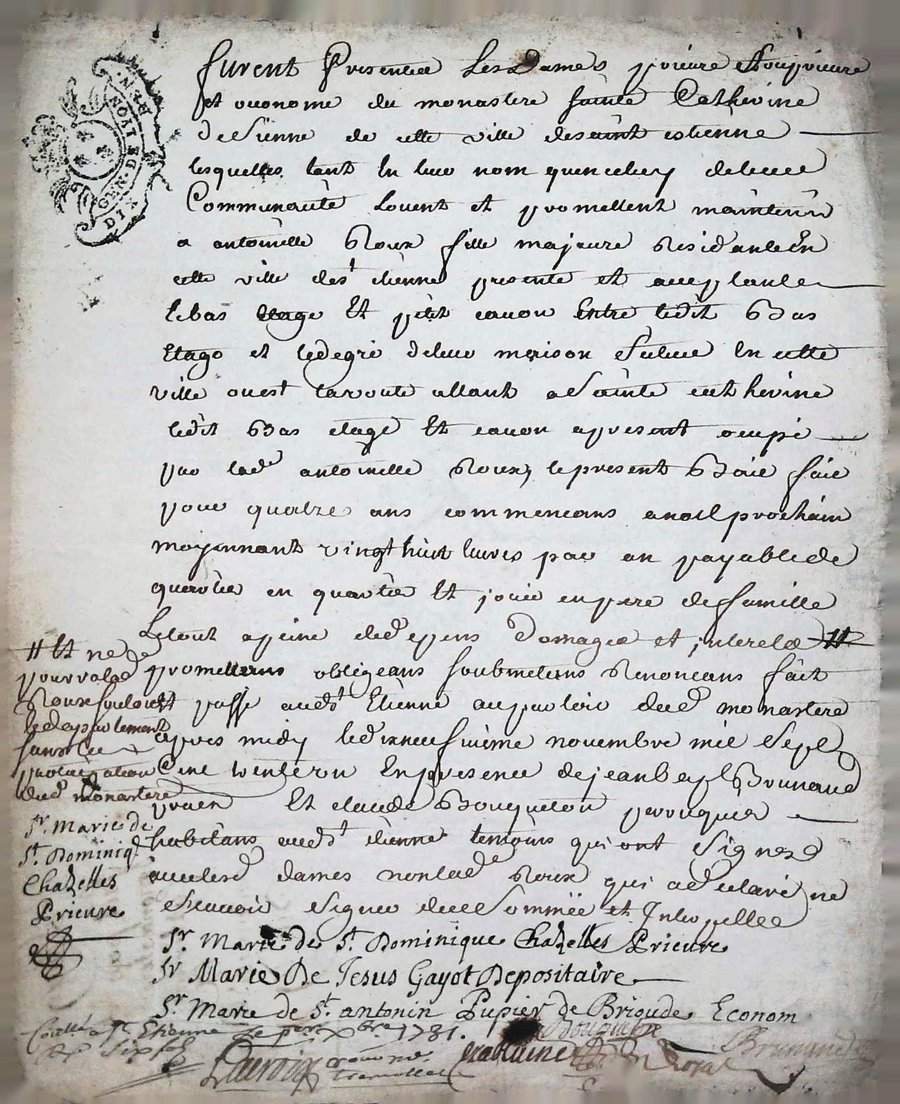 GEN. DE LYON
furent Presentes Les Dames prieure Souprieure
et oeconome du monastere sainte Catherine
desienne de cette ville desaint estienne
lesquelles tant en leur nom quencelluy deleur
Communaute Louent et promettent maintenir
a antoinette Roux fille majeure Residante En
cette ville des.t etienne presente et acceptante
lebas etage Et petit caveau Entre ledit Bas
Etage et ledegré deleur maison scituee En cette
ville ouest laroute allant asainte catherine
ledit Bas etage Et caveau apresent ocupé
par lad.e antoinette Roux, lepresent Bail fait
pour quatre ans commencans anoel prochain
moyennant vingt huit livres par an payable de
quartier en quartier Et jouir en pere defamille
Letout apeine de depens Domages et interets #
promettans obligeans soubmettans Renoncans fait
et passé aud.t Etienne auparloir dud. monastere
apres midy ledixneufvième novembre mil sept
Cent trente un En presence dejean bapt Brunand
Et claude Bouqueton perruquier
habitans aud.t etienne temoins qui ont signes
aveclesd. dames non lad.e Roux qui adeclaré ne
scavoir signer dece Sommée et Interpellee
# Et ne
pourra lad.
Roux
sans la
participation
dud. monastere
Sr. Marie de
St. Dominiq.
Chazelles
Prieure
Sr. Marie de St. Dominique Chazelles Prieure
Sr Marie De Jesus Gayot Depositaire
Sr. Marie de St. antonin Pupier de Brioude Econom
a St Etienne Le per xbre 1731.
Brunand